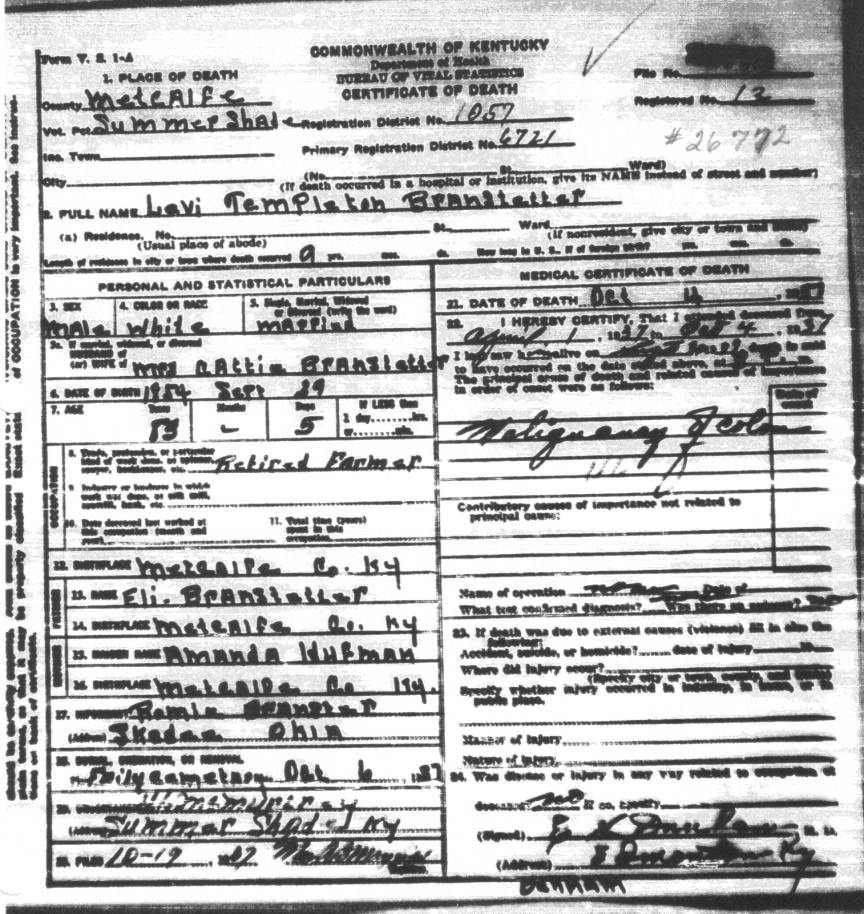 Form V. S. 1-A
COMMONWEALTH OF KENTUCKY
Department of Health
BUREAU OF VITAL STATISTICS
CERTIFICATE OF DEATH
File No.
Registered No. 12
#26772
1. PLACE OF DEATH
County Metcalfe
Vot. Pct. Summer Shade Registration District No. 1057
Inc. Town Primary Registration District No. 6721
City (No. St. Ward)
(If death occurred in a hospital or institution, give its NAME instead of street and number)
2. FULL NAME Levi Templeton Branstetter
(a) Residence. No. St. Ward
(Usual place of abode) (If nonresident, give city or town and state)
Length of residence in city or town where death occurred 9 yrs. mos. ds. How long in U. S., if of foreign birth? yrs. mos. ds.
PERSONAL AND STATISTICAL PARTICULARS
3. SEX 4. COLOR OR RACE 5. Single, Married, Widowed or Divorced (write the word)
Male White Married
5a. If married, widowed, or divorced
HUSBAND of
(or) WIFE of Mrs Branstetter
6. DATE OF BIRTH 1854 Sept 29
7. AGE Years Months Days If LESS than
83 - 5 1 day hrs.
or min.
OCCUPATION
8. Trade, profession, or particular kind of work done, as spinner, sawyer, bookkeeper, etc. Retired Farmer
9. Industry or business in which work was done, as silk mill, sawmill, bank, etc.
10. Date deceased last worked at this occupation (month and year)
11. Total time (years) spent in this occupation
12. BIRTHPLACE Metcalfe Co. Ky
13. NAME Eli. Branstetter
14. BIRTHPLACE Metcalfe Co. Ky
15. MAIDEN NAME Amanda Hufman
16. BIRTHPLACE Metcalfe Co Ky.
17. INFORMANT Branstetter
(Address)
18. BURIAL, CREMATION, OR REMOVAL
Oct 6 1937
(Address) Summer Shade Ky
20. FILED 10-19, 1937
MEDICAL CERTIFICATE OF DEATH
21. DATE OF DEATH Oct 4, 1937
22. I HEREBY CERTIFY, That I attended deceased from
April 1 1937 to Oct 4, 1937
I last saw h alive on Sept death is said
to have occurred on the date stated above, at m.
The principal cause of death and related causes of importance
in order of onset were as follows:
Date of onset
Malignancy of colon
Contributory causes of importance not related to
principal cause:
Name of operation Date of
What test confirmed diagnosis? Was there an autopsy?
23. If death was due to external causes (violence) fill in also the
following:
Accident, suicide, or homicide? date of injury 19
Where did injury occur?
(Specify city or town, county, and State)
Specify whether injury occurred in industry, in home, or in
public place.
Manner of injury
Nature of injury
24. Was disease or injury in any way related to occupation of
deceased? no If so, specify
(Signed) M. D.
(Address) Edmonton Ky